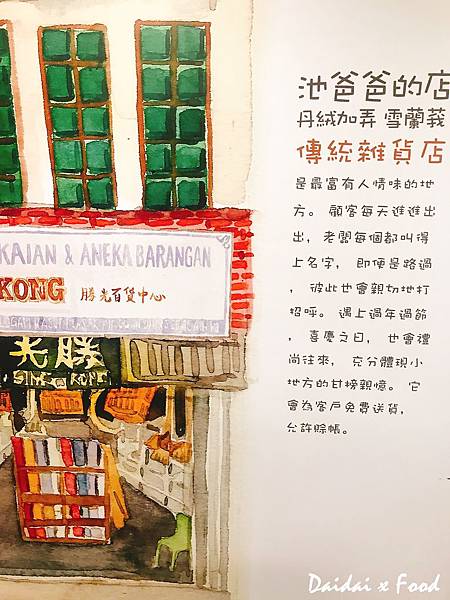 池爸爸的店
丹絨加弄 雪蘭莪
傳統雜貨店
是最富有人情味的地
方。 顧客每天進進出
出, 老闆每個都叫得
上名字, 即便是路過
, 彼此也會親切地打
招呼。 遇上過年過節
, 喜慶之日, 也會禮
尚往來, 充分體現小
地方的甘榜親憶。 它
會為客戶免費送貨,
允許賒帳。
KAIAN & ANEKA BARANGAN
KONG 勝光百貨中心
光勝
SING KONG
Daidai x Food